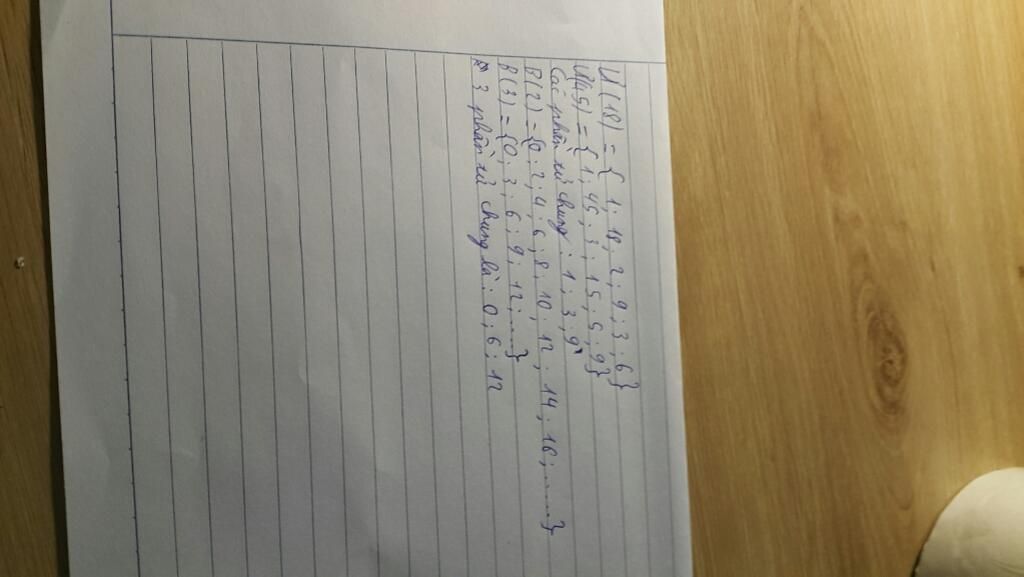 Ư(18) = { 1 ; 18 ; 2 ; 9 ; 3 ; 6}
Ư(45) = { 1 ; 45 ; 3 ; 15 ; 5 ; 9}
Các phần tử chung : 1 ; 3 ; 9
B(2) = {0 ; 2 ; 4 ; 6 ; 8 ; 10 ; 12 ; 14 ; 16 ; .....}
B(3) = {0 ; 3 ; 6 ; 9 ; 12 ; ....}
3 phần tử chung là : 0 ; 6 ; 12